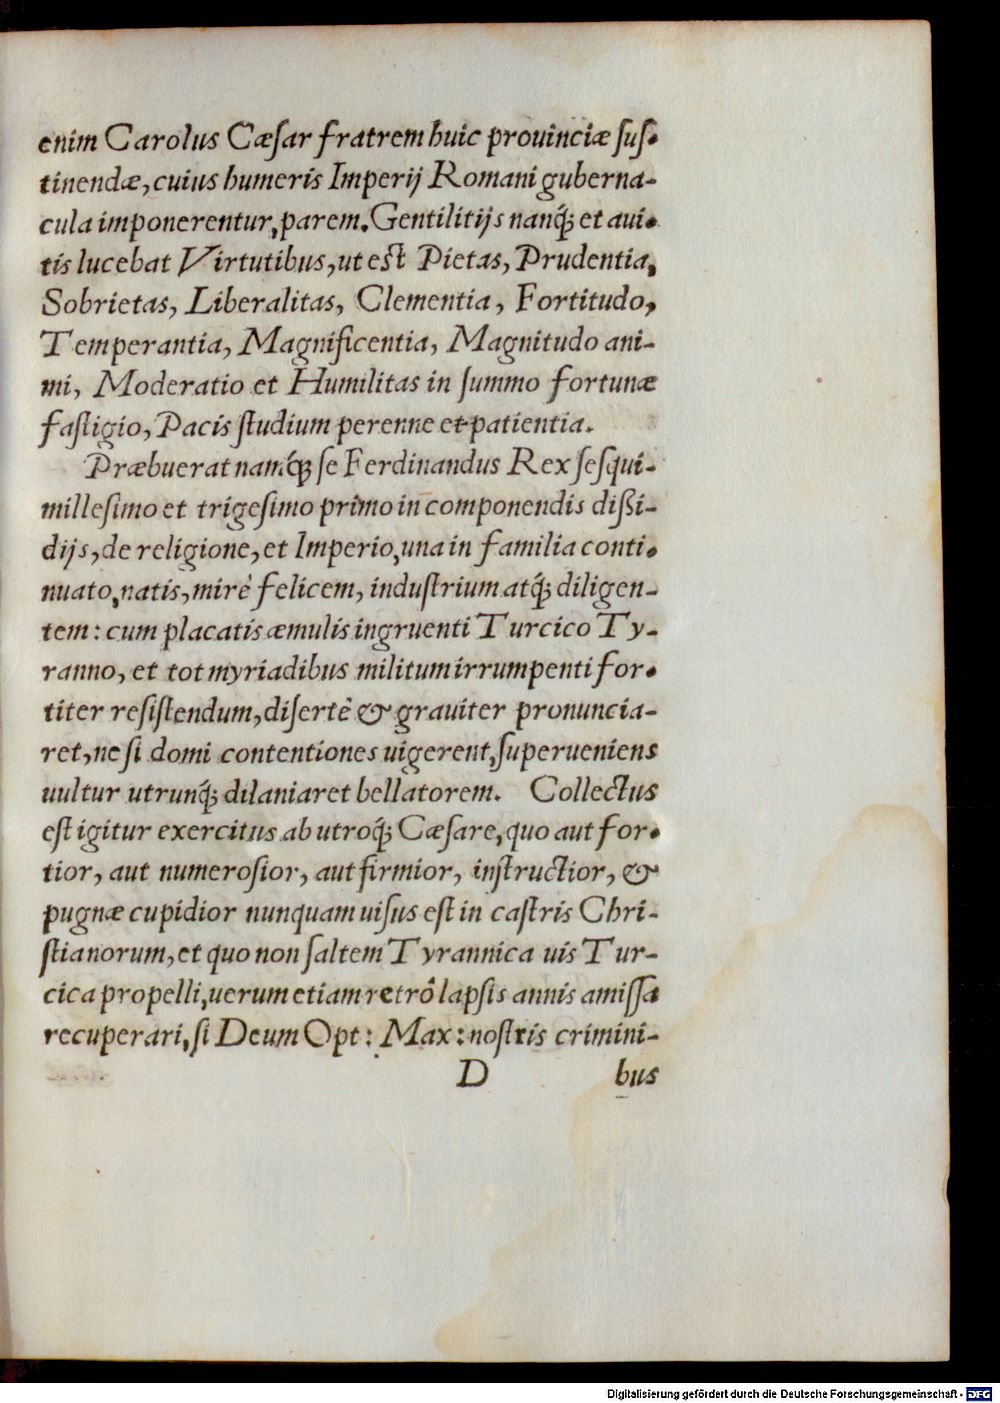 enim Carolus Cæſar fratrem huic prouinciæ ſuſ-
tinendæ, cuius humeris Imperij Romani guberna-
cula imponerentur, parem. Gentilitijs nanq́; et aui-
tis lucebat Virtutibus, ut eſt Pietas, Prudentia,
Sobrietas, Liberalitas, Clementia, Fortitudo,
Temperantia, Magnificentia, Magnitudo ani-
mi, Moderatio et Humilitas in ſummo fortunæ
faſtigio, Pacis ſtudium perenne et patientia.
Præbuerat namq́; ſe Ferdinandus Rex ſeſqui-
milleſimo et trigeſimo primo in componendis diſſi-
dijs, de religione, et Imperio, una in familia conti-
nuato, natis, mirè felicem, induſtrium atq́; diligen-
tem: cum placatis æmulis ingruenti Turcico Ty-
ranno, et tot myriadibus militum irrumpenti for-
titer reſiſtendum, diſertè & grauiter pronuncia-
ret, ne ſi domi contentiones uigerent, ſuperueniens
uultur utrunq́; dilaniaret bellatorem. Collectus
eſt igitur exercitus ab utroq́; Cæſare, quo aut for-
tior, aut numeroſior, aut firmior, inſtructior, &
pugnæ cupidior nunquam uiſus eſt in caſtris Chri-
ſtianorum, et quo non ſaltem Tyrannica uis Tur-
cica propelli, uerum etiam retrò lapſis annis amiſſa
recuperari, ſi Deum Opt: Max: noſtris crimini-
D bus
Digitalisierung gefördert durch die Deutsche Forschungsgemeinschaft - DFG